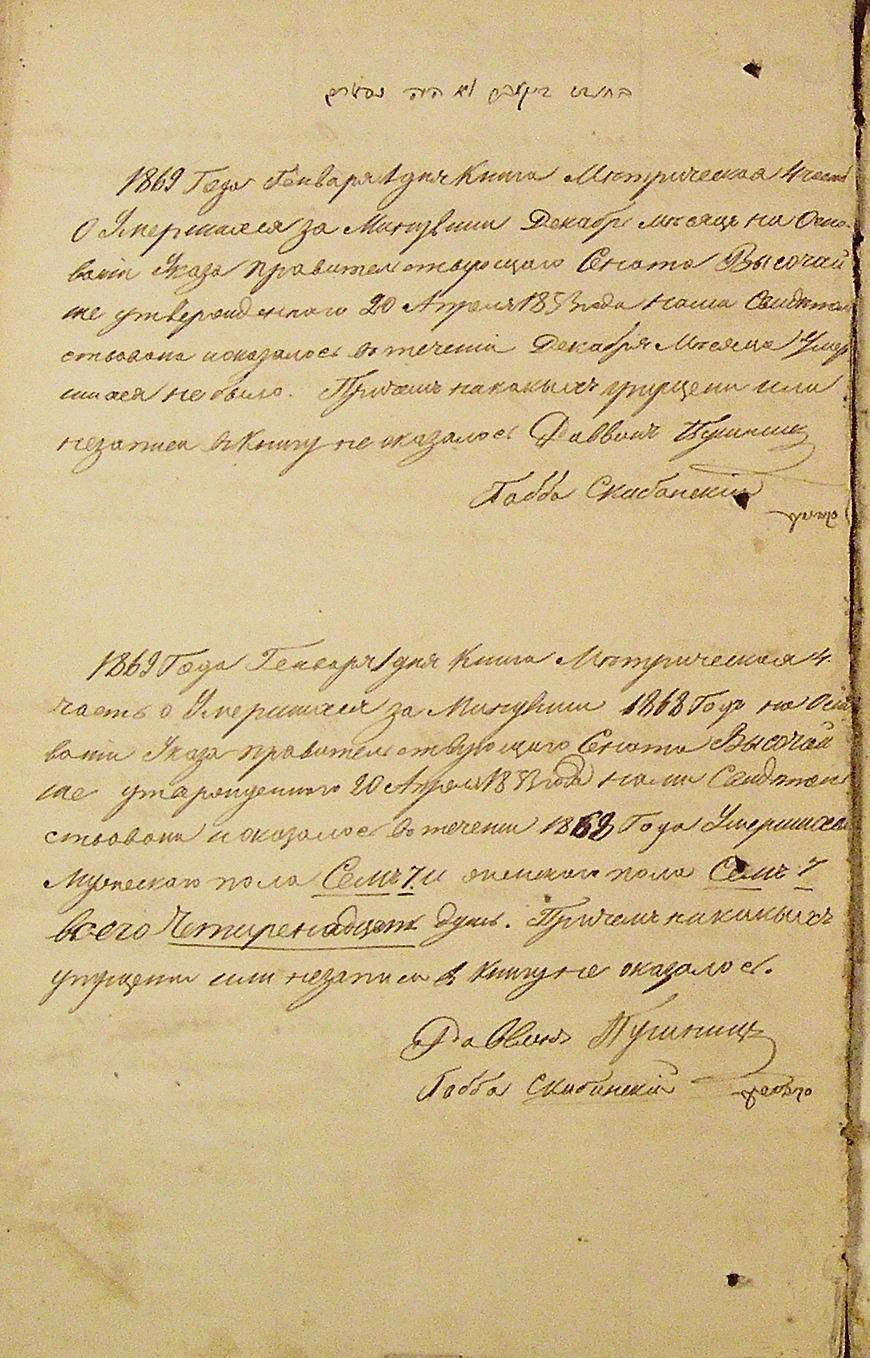 בחודש דיקאבר לא היה נפטרים
1869 Года Генваря 1 дня Книга Метрическая 4 часть
О Умершихся за Минувши Декабрь месяцъ на Осно-
вании Указа правительствующаго Сената Высочай
ше утвержденнаго 20 Апреля 1853 года нами Свидетель
ствована и оказалось во течении Декабря Месяца Умер
шихся не было. Притомъ никакыхъ упущени или
незаписи в Книгу не оказалось Давванъ
Габба Скибинский
1869 Года Генваря 1 дня Книга Метрическая 4.
часть о Умершихся за Минувши 1868 Годъ на Осно
вании Указа правительствующаго Сената Высочай
ше утаржденнаго 20 Апреля 1853 года нами Свидетель
ствована и оказалось во течении 1868 Года Умершихся
Мужескаго пола Семъ 7. и женскаго пола Семъ 7
всего Четиренадцать душъ. Причемъ никакыхъ
упущени или незаписи в Книгу не оказалось.
Давванъ
Габба Скибинский